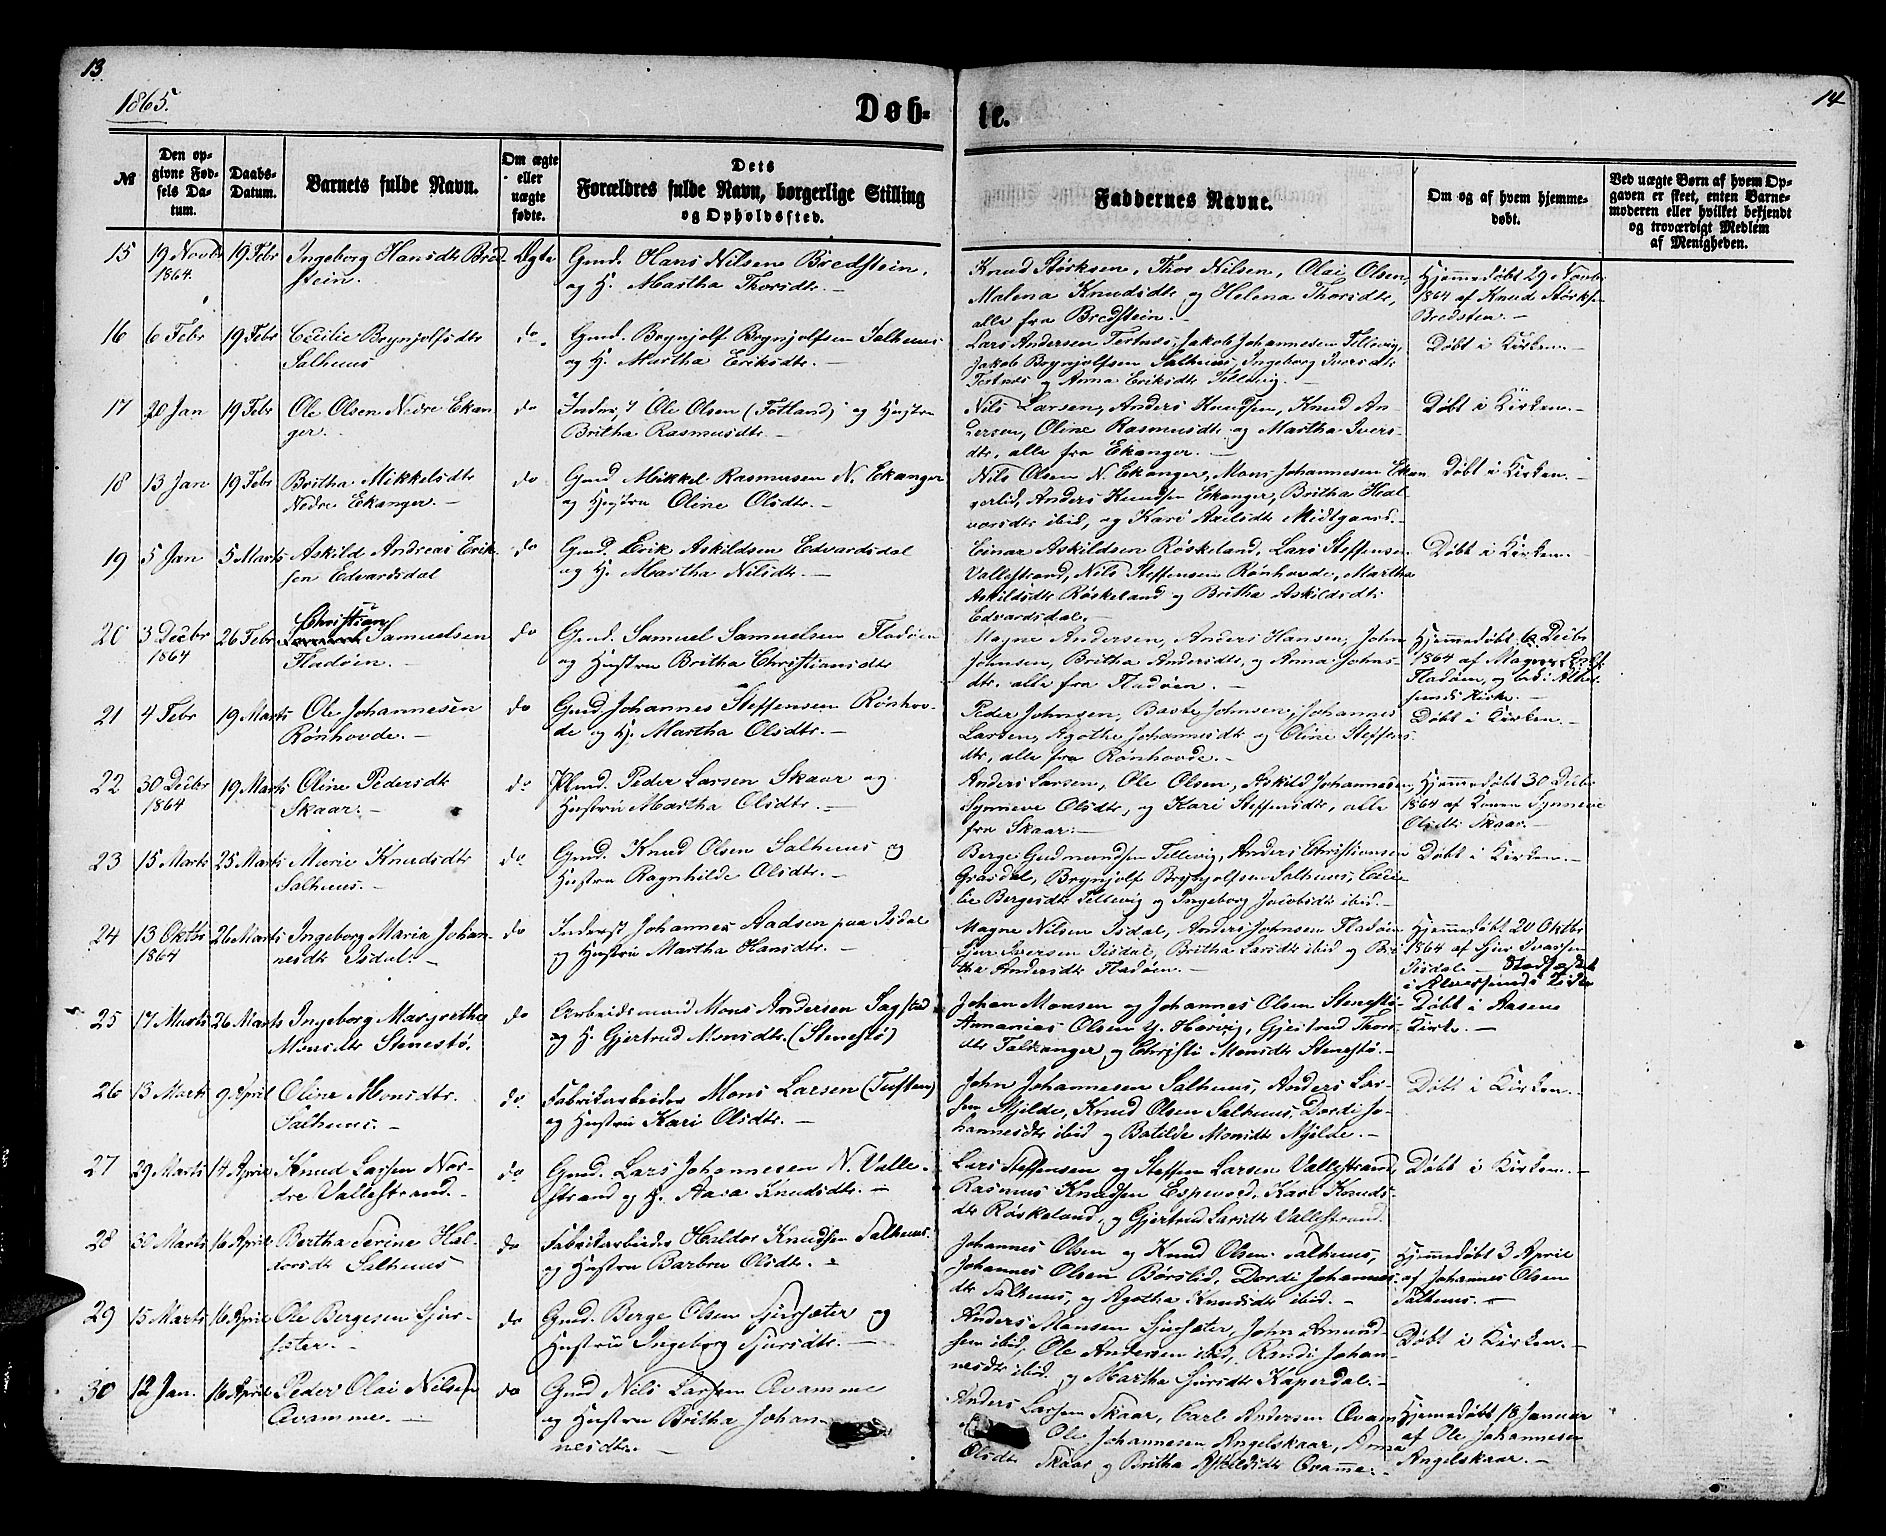 13
14
1865.
Døb-
te.
№
Den op-
givne Fød-
sels Da-
tum.
Daabs-
Datum.
Barnets fulde Navn.
Om ægte
eller
uægte
fødte.
Dets
Forældres fulde Navn, borgerlige Stilling
og Opholdssted.
Faddernes Navne.
Om og af hvem hjemme-
døbt.
Ved uægte Børn af hvem Op-
gaven er skeet, enten Barne-
moderen eller hvilket bekjendt
og troværdigt Medlem
af Menigheden.
15
19 Novbr
1864.
19 Febr
Ingeborg Hansdtr Bred
stein.
Ægte
Gmd. Hans Nilsen Bredstein,
og H. Martha Thorsdtr. —
Knud Størksen, Thor Nilsen, Olai Olsen,
Malena Knudsdtr og Helena Thorsdtr,
alle fra Bredstein. —
Hjemmedøbt 29 Novbr
1864 af Knud Størks.
Bredsten. —
16
6 Febr
19 Febr
Cecilie Brynjolfsdtr
Salhuus
do.
Gmd. Brynjolf Brynjolfsen Salhuus
og H. Martha Eriksdtr. —
Lars Andersen Tertnes, Jakob Johannesen Tellevig,
Jakob Brynjolfsen Salhuus, Ingeborg Iversdtr
Tertnes og Anna Eriksdtr Tellevig. —
Døbt i Kirken. —
17
20 Jan
19 Febr
Ole Olsen Nedre Ekan
ger. —
do
Inderst Ole Olsen (Totland) og Hustru
Britha Rasmusdtr. —
Nils Larsen, Anders Knudsen, Knud An
dersen, Oline Rasmusdtr og Martha Ivers-
dtr, alle fra Ekanger. —
Døbt i Kirken. —
18
13 Jan
19 Febr
Britha Mikkelsdtr
Nedre Ekanger. —
do
Gmd Mikkel Rasmusen N. Ekanger
og Hustru Oline Olsdtr. —
Nils Olsen N. Ekanger, Mons Johannesen Ekan
gerlid, Anders Knudsen Ekanger, Britha Hal
vorsdtr ibid, og Kari Axelsdtr Midtgaard. —
Døbt i Kirken. —
19
5 Jan
5 Marts
Askild Andreas Erik-
sen Edvardsdal
do
Gmd. Erik Askildsen Edvardsdal
og H. Martha Nilsdtr. —
Einar Askildsen Røskeland, Lars Steffensen
Vallestrand, Nils Steffensen Rønhovde, Martha
Askildsdtr Røskeland og Britha Askildsdtr
Edvardsdal. —
Døbt i Kirken. —
20
3 Decbr
1864
26 Febr
Christian
Samuelsen
Fladøen. —
do
Gmd. Samuel Samuelsen Fladøen
og Hustru Britha Christiansdtr
Magne Andersen, Anders Hansen, John
Johnsen, Britha Andersdtr, og Anna Johns-
dtr. alle fra Fladøen. —
Hjemmedøbt 6 Decbr
1864 af Magne
Fladøen, og
Kirke. —
21
4 Febr
19 Marts
Ole Johannesen
Rønhovde. —
do
Gmd Johannes Steffensen Rønhov-
de og H. Martha Olsdtr. —
Peder Johnsen, Baste Johnsen, Johannes
Larsen, Agothe Johannesdtr og Oline Steffens
dtr, alle fra Rønhovde. —
Døbt i Kirken. —
22
30 Decbr
1864
19 Marts
Oline Pedersdtr
Skaar. —
do
Plmd. Peder Larsen Skaar og
Hustru Martha Olsdtr. —
Anders Larsen, Ole Olsen, Askild Johannesen
Synneve Olsdtr, og Kari Steffensdtr, alle
fra Skaar. —
Hjemmedøbt 30 Decbr
1864 af Konen Synneve
Olsdtr Skaar. —
23
15 Marts
25 Marts
Marie Knudsdtr
Salhuus. —
do
Gmd. Knud Olsen Salhuus og
Hustru Ragnhilde Olsdtr. —
Berge Gudmundsen Tellevig, Anders Christiansen
Grasdal, Brynjolf Brynjolfsen Salhuus, Ceci-
lie Bergesdtr Tellevig og Ingeborg Jacobsdtr ibid. —
Døbt i Kirken. —
24
13 Oktbr
1864
26 Marts
Ingeborg Maria Johan-
nesdtr Isdal. —
do
Inderst Johannes Aadsen paa Isdal
og Hustru Martha Hansdtr. —
Magne Nilsen Isdal, Anders Johnsen Fladøen
Sjur Iversen Isdal, Britha Larsdtr ibid og Bri
tha Andersdtr Fladøen. —
Hjemmedøbt 20 Oktbr
1864 af Sjur Ivarsen
Isdal. — Stadfæstet
i Alversund Kirke
25
17 Marts
26 Marts
Ingeborg Margrethe
Monsdtr Stenestø.
do
Arbeidsmand Mons Andersen Sagstad
og H. Gjertrud Monsdtr. (Stenestø)
Johan Monsen og Johannes Olsen Stenestø
Annanias Olsen y. Hervig, Gjertrud Thors
dtr Falkanger, og Christi Monsdtr Stenestø. —
Døbt i Aasene
Kirke. —
26
13 Marts
9 April
Oline Monsdtr.
Salhuus. —
do
Fabrikarbeider Mons Larsen (Tuften)
og Hustru Kari Olsdtr. —
John Johannesen Salhuus, Anders Lar-
sen Mjelde, Knud Olsen Salhuus, Dordi Jo-
hannesdtr ibid og Batilde Monsdtr Mjelde. —
Døbt i Kirken. —
27
29 Marts
14 April
Knud Larsen Nor-
dre Vallestrand. —
do
Gmd. Lars Johannesen N. Valle-
strand og H. Aasa Knudsdtr. —
Lars Steffensen og Steffen Larsen Vallestrand,
Rasmus Knudsen Espevold, Kari Knuds-
dtr Røskeland, og Gjertrud Larsdtr Vallestrand.
Døbt i Kirken. —
28
30 Marts
16 April
Bertha Serine Hal-
dorsdtr Salhuus
do
Fabrikarbeider Haldor Knudsen Salhuus.
og Hustru Barbru Olsdtr. —
Johannes Olsen og Knud Olsen Salhuus,
Johannes Olsen Børslid, Dordi Johannes-
dtr Salhuus, og Agotha Knudsdtr ibid. —
Hjemmedøbt 3 April
af Johannes Olsen
Salhuus. —
29
15 Marts
16 April
Ole Bergesen Sjur-
sæter. —
do
Gmd. Berge Olsen Sjursæter og
Hustru Ingeborg Sjursdtr. —
Anders Monsen Sjursæter, John Amund-
sen ibid, Ole Andersen ibid, Randi Johan-
nesdtr ibid og Martha Sjursdtr Kaperdal. —
Døbt i Kirken. —
30
12 Jan.
16 April
Peder Olai Nilsen
Qvamme. —
do
Gmd Nils Larsen Qvamme
og Hustru Britha Johan-
nesdtr. —
Anders Larsen Skaar, Carl Andersen Qvam
Ole Johannesen Angelskaar, Anna
Olsdtr Skaar og Britha Askildsdtr Qvamme. —
Hjemmedøbt 18 Januar
af Ole Johannesen
Angelskaar. —